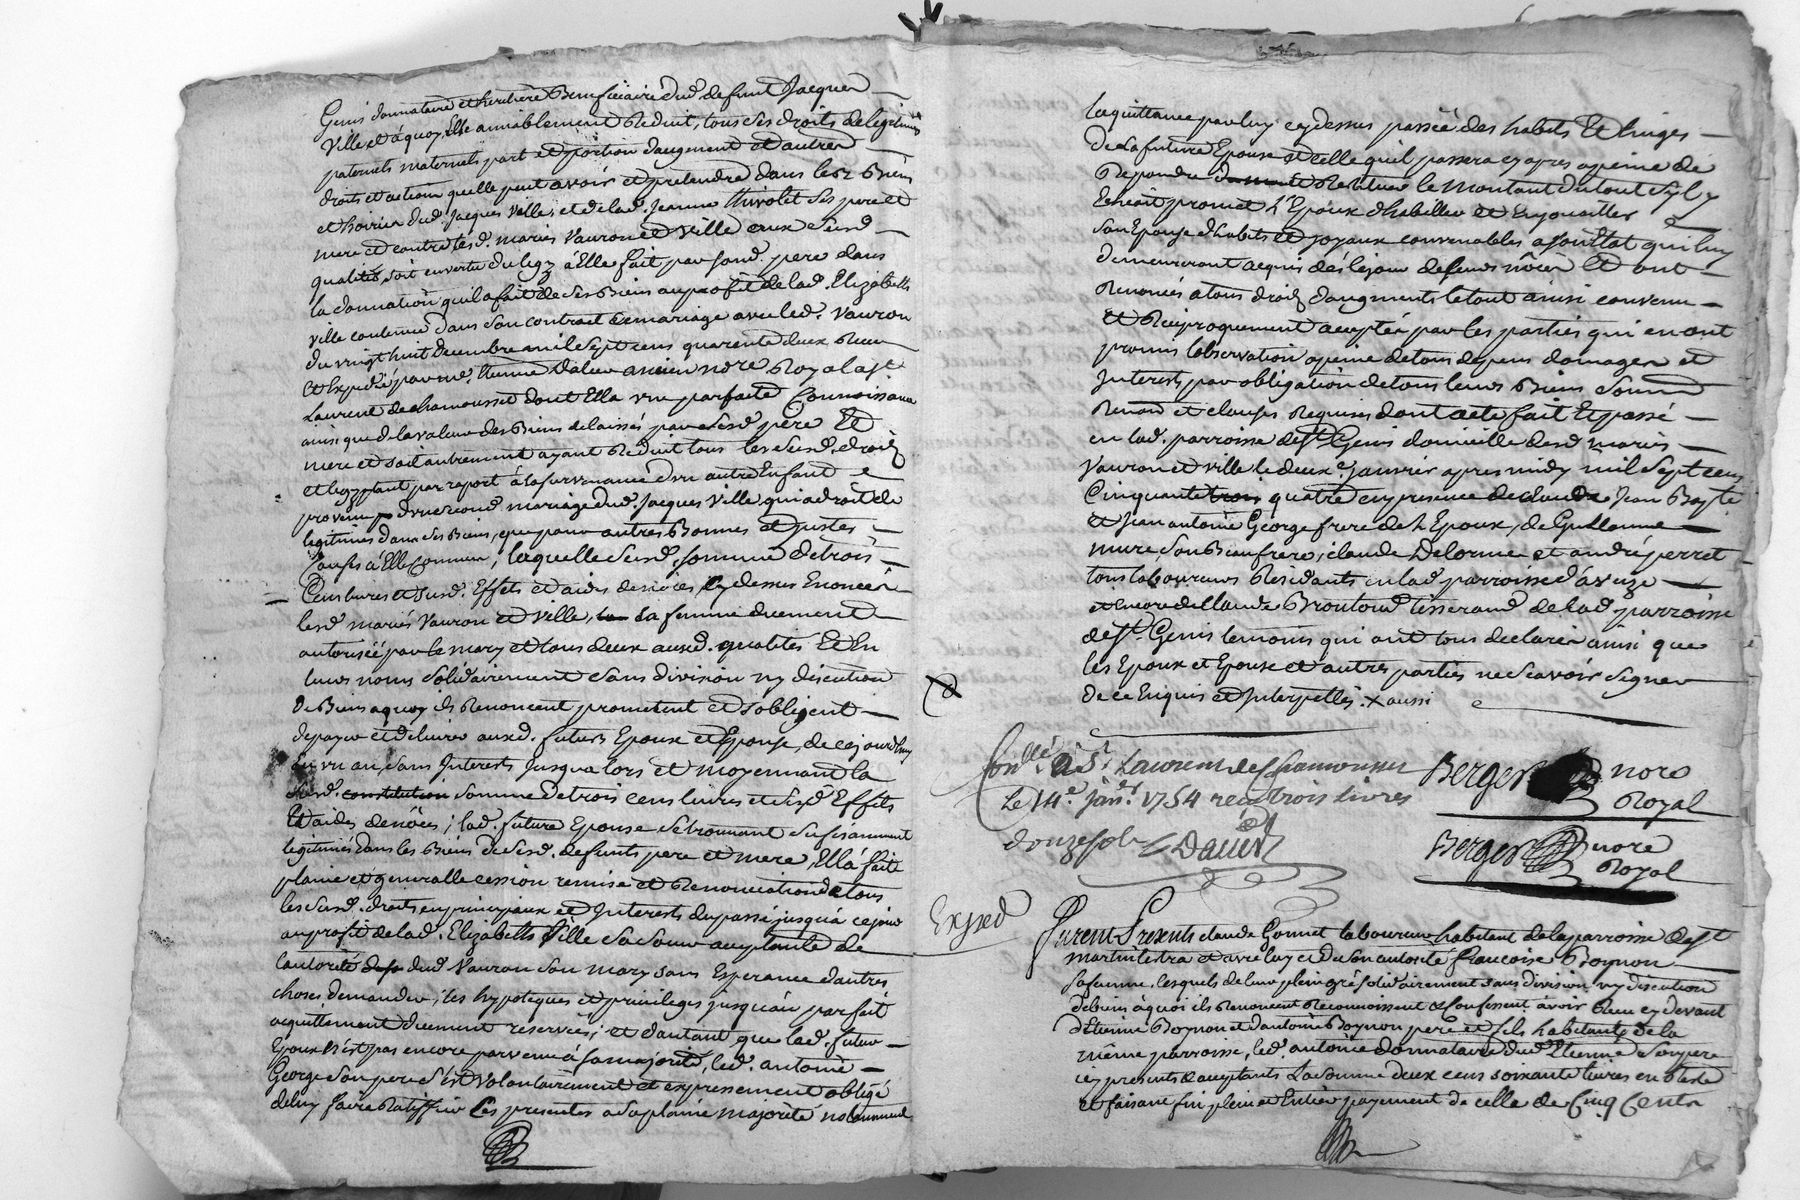 Genis donnataire et heritiere Beneficiaire dud. deffunt Jacques
Ville, et à quoy Elle amiablement Reduit, tous ses droits de legitimes
paternels maternels part et portion daugment et autres
droits et actions quelle peut avoir et pretendre dans les Biens
et hoiries dud. Jacques Ville, et de lad. Jeanne thivolet ses pere et
mere et contre lesd. mariés Vauron et Ville aux susd.
qualités, soit en vertu du legz à Elle fait par sond. pere dans
la donnation qu'il a fait de ses Biens au profit de lad. Elizabeth
ville contenue dans son contract de mariage avec led. Vauron
du vingt huit decembre mil sept cens quarente deux Receu
et Expedié par me. Etienne Dalier ancien nore Royal a st
Laurent de chamousset dont Ella une parfaite Connoissance
ainsi que de la valeur des Biens delaissés par sesd. père Et
mere et soit autrement ayant Reduit tous les susd. droits
et legz tant par raport à la survenance d'un autre Enfant
provenu d'un second mariage dud. Jacques Ville qui a droit de
legitimes dans ses Biens, que pour autres Bonnes et justes
Causes à Elle Connues; laquelle susd. somme de trois
Cens livres et susd. Effets et aides de nôces cy dessus Enoncées
lesd. mariés Vauron et Ville, sa femme duement
autorisée par le mary et tous deux auxd. qualités Et En
leurs noms solidairement sans division ny discution
de Biens a quoy ils Renoncent promettent et s'obligent
de payer et delivrer auxd. futurs Epoux et Epouse, de cejourdhuy
En un an, sans Interests jusqualors et moyennant la
susd. constitution somme de trois cens livres et susd. Effets
Et aides de nôces; lad. future Epouse se trouvant suffisamment
legitimée dans les Biens de sesd. deffunts pere et mere, Ella fait
plaine et generalle cession remise et Renonciation de tous
les susd. droits en principaux et Interests du passé jusqu'à ce jour
au profit de lad. Elizabeth Ville sa soeur acceptante de
l'autorité dud Vauron son mary sans Esperance d'autres
choses demander; les hypoteques et privileges jusqu'au parfait
acquittement duement reservées; et d'autant que led. futur
Epoux n'est pas encore parvenu à sa majorité, led. antoine
George son pere s'est volontairement et expressement obligé
de luy faire Ratiffier les presentes a sa plaine majorité notamment
la quittance par luy cy dessus passée des habits Et linges
de La future Epouse et celle qu'il passera cy apres a peine de
Repondre et Restituer le montant du tout s'il y
Echeoit promet L'Epoux d'habiller et Enjouailler
son Epouse d'habits et joyaux convenables a son Etat qui luy
demeureront acquis dés le jour de leurs nôces Et ont
Renoncés a tous droits d'augments le tout ainsi convenu
et Reciproquement accepté par les parties qui en ont
promis l'observation a peine de tous depens domages et
Interests par obligation de tous leurs Biens soumis
Renon et clauses Requises dont acte fait Et passé
en lad. parroisse de st. Genis domicille desd mariés
Vauron et ville le deuxe. janvier apres midy mil sept cens
Cinquante trois quatre en presence de claude Jean Bapte.
et Jean antoine George frere de L'Epoux, de Guillaume
mure son Beaufrere, claude Delorme et andré perret
tous laboureurs Residants en lad parroisse d'aveize
et encore de Claude Broutoud tisserand de lad. parroisse
de st. Genis temoins qui ont tous declarés ainsi que
les Epoux et Epouse et autres parties ne sçavoir signer
de ce Enquis et Interpellés. x aussi
Conllé à St Laurent de Chamousset
Le 14e. Janer. 1754 reçu trois livres
douze sols Daviet
Berger nore
Royal
Berger nore
Royal
Exped
Furent Presents claude Gonnet laboureur habitant de la parroisse de st
martin lestra et avec luy et de son autorité francoise Boynon
sa femme, lesquels de leur plein gré solidairement sans division ny discution
de biens à quoi ils Renoncent Reconnoissent et confessent avoir Reçu cy devant
d'Etienne Boynon et d'antoine Boynon pere et fils habitants de la
même parroisse, led. antoine donnataire dud Etienne son pere
icy presents & acceptants La somme deux cens soixante livres en Reste
et faisant fin plein et Entier payement de celle de Cinq Cents